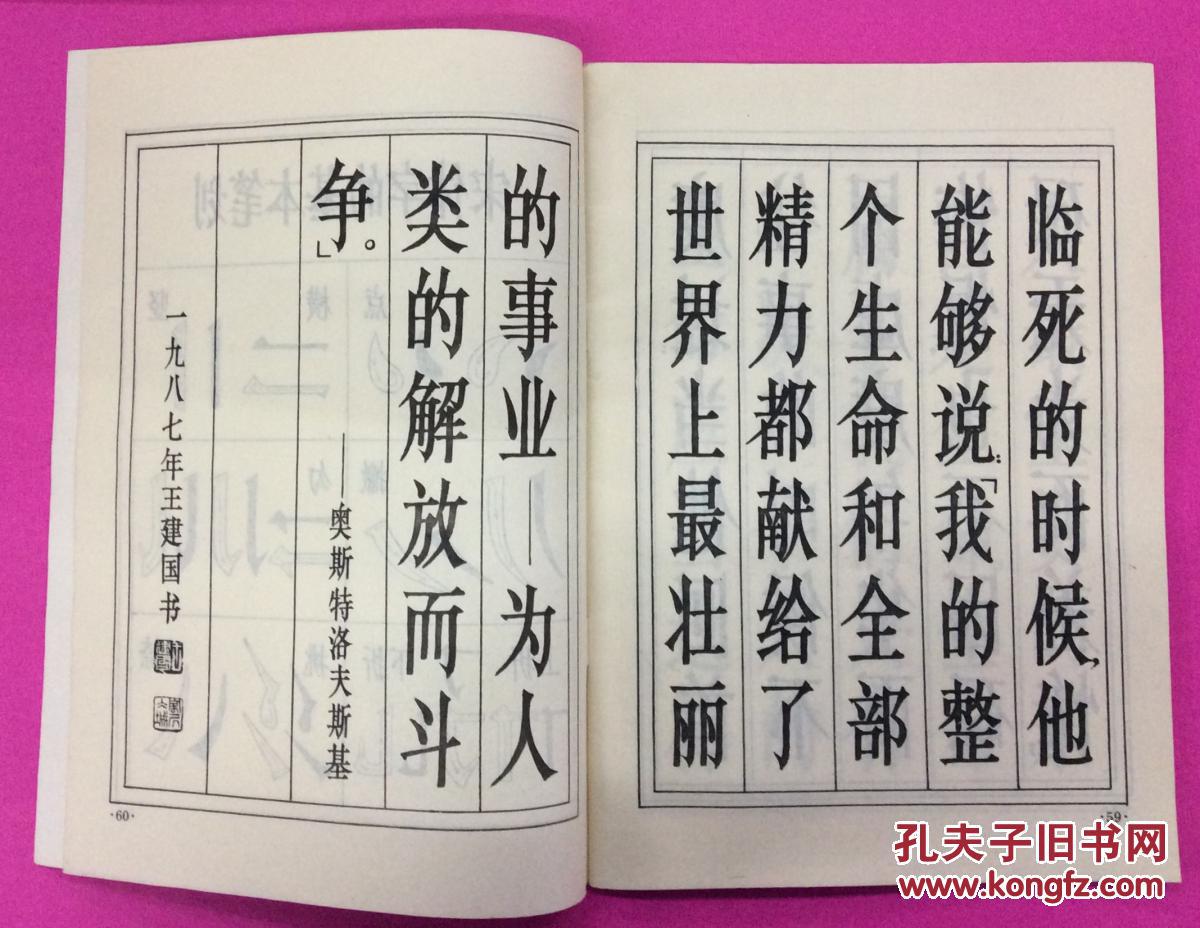 临死的时候，他
能够说：「我的整
个生命和全部
精力都献给了
世界上最壮丽
·59·
的事业——为人
类的解放而斗
争」。
——奥斯特洛夫斯基
一九八七年王建国书
·60·
孔夫子旧书网
www.kongfz.com